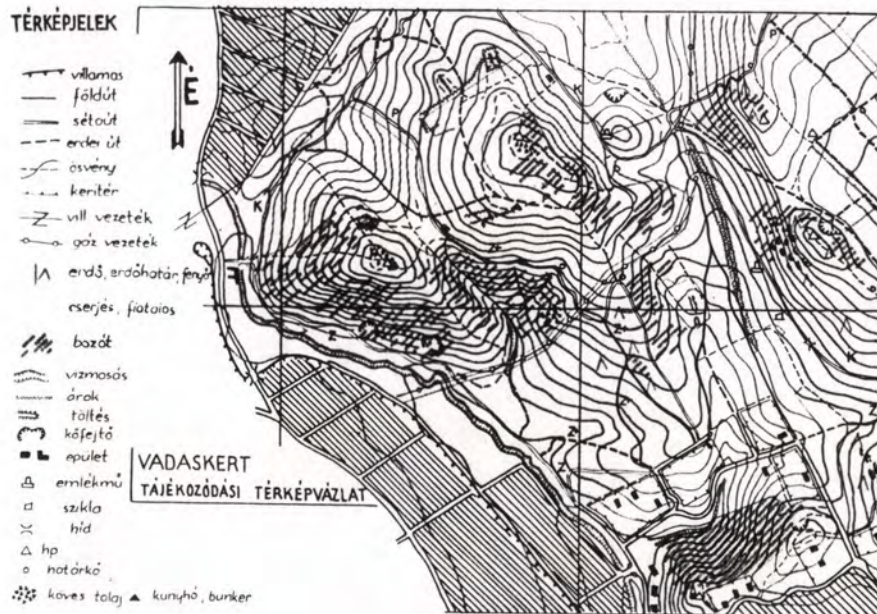 TÉRKÉPJELEK
É
villamos
földút
sétaút
erdei út
ösvény
kerítér
vill vezeték
gáz vezeték
erdő, erdőhatár, fenyő
cserjés, fiatalos
bozót
vízmosás
árok
töltés
kőfejtő
épület
emlékmű
szikla
híd
hp
hotárkő
köves talaj
kunyhó, bunker
VADASKERT
TÁJÉKOZÓDÁSI TÉRKÉPVÁZLAT
K
P
K
P
P
K
K
Z
Z